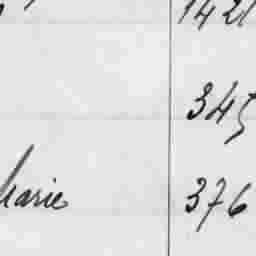 1421
345
Marie 376